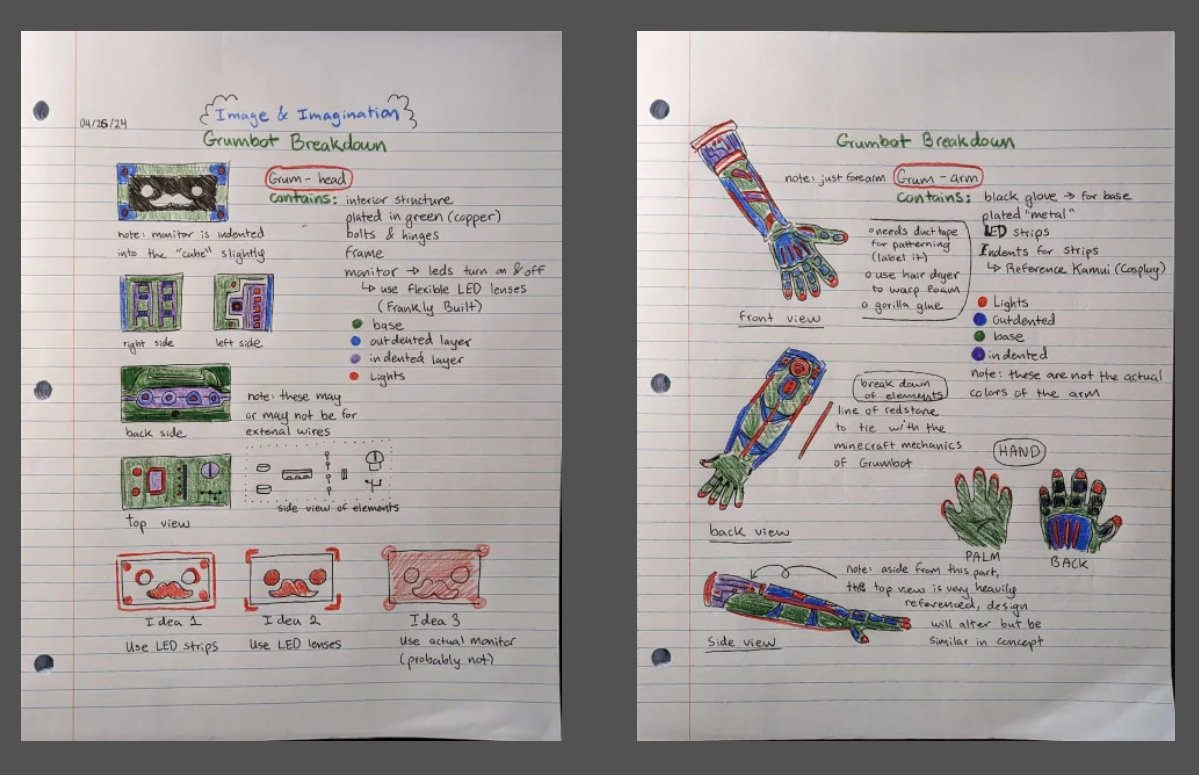 04/25/24
Image & Imagination
Grumbot Breakdown
Grum-head
contains: interior structure
plated in green (copper)
bolts & hinges
frame
monitor → leds turn on & off
↳ use flexible LED lenses
(Frankly Built)
base
outdented layer
indented layer
Lights
note: monitor is indented
into the "cube" slightly
right side
left side
back side
note: these may
or may not be for
external wires
top view
side view of elements
Idea 1
Use LED strips
Idea 2
Use LED lenses
Idea 3
Use actual monitor
(probably not)
Grumbot Breakdown
note: just forearm
Grum-arm
contains: black glove → for base
plated "metal"
LED strips
Indents for strips
↳ Reference Kamui (Cosplay)
o needs duct tape
for patterning
(label it)
o use hair dryer
to warp foam
o gorilla glue
Lights
Outdented
base
indented
note: these are not the actual
colors of the arm
front view
break down
of elements
line of redstone
to tie with the
minecraft mechanics
of Grumbot
back view
HAND
PALM
BACK
note: aside from this part,
the top view is very heavily
referenced, design
will alter but be
similar in concept
side view